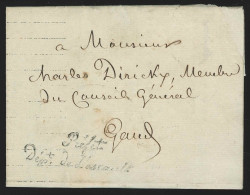 a Monsieur
Charles Dirickx, Membre
du Conseil Général
Gand
Préf.t
Dépt. de l'Escaut